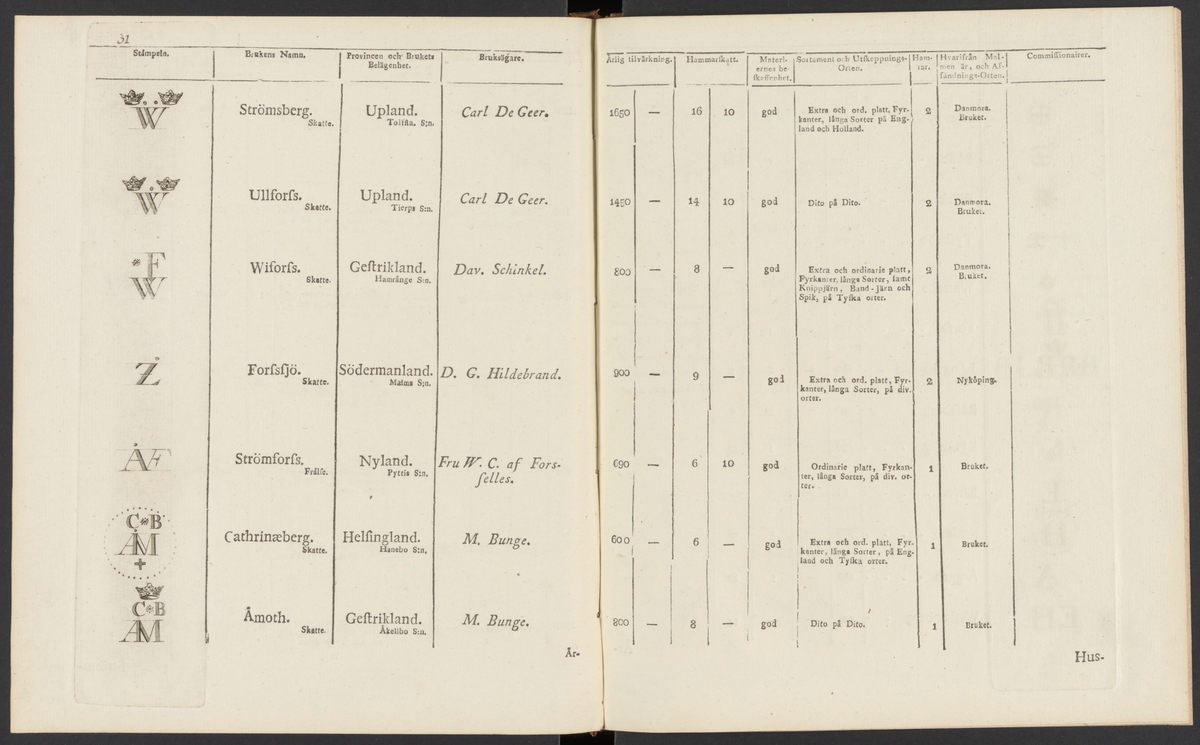 31
Stämpeln. Brukens Namn. Provincen och Brukets Belägenhet. Bruksägare. Årlig tilvärkning. Hammarskatt. Materiernes beskaffenhet. Sortament och Utskeppnings-Orten. Hamrar. Hvarifrån Malmen är, och Afsändnings-Orten. Commissionairer.
W
Strömsberg. Upland. Carl De Geer. 1650 — 16 10 god Extra och ord. platt, Fyr- 2 Danmora.
Skatte. Tolffta. S:n. kanter, långa Sorter på Eng- Bruket.
land och Holland.
W
Ullforſs. Upland. Carl De Geer. 1450 — 14 10 god Dito på Dito. 2 Danmora.
Skatte. Tierps S:n. Bruket.
*F
W
Wiforſs. Geſtrikland. Dav. Schinkel. 800 — 8 — god Extra och ordinarie platt, 2 Danmora.
Skatte. Hamränge S:n. Fyrkanter, långa Sorter, ſamt Bruket.
Knippjärn, Band-Järn och
Spik, på Tyſka orter.
Z
Forſsſjö. Södermanland. D. G. Hildebrand. 900 — 9 — god Extra och ord. platt, Fyr- 2 Nyköping.
Skatte. Malms S:n. kanter, långa Sorter, på div.
orter.
ÅF
Strömforſs. Nyland. Fru W. C. af Forſ- 690 — 6 10 god Ordinarie platt, Fyrkan- 1 Bruket.
Frälſe. Pyttis S:n. ſelles. ter, långa Sorter, på div. or-
ter.
C*B
ÅM
+
Cathrinæberg. Helſingland. M. Bunge. 600 — 6 — god Extra och ord. platt, Fyr- 1 Bruket.
Skatte. Hanebo S:n. kanter, långa Sorter, på Eng-
land och Tyſka orter.
C*B
ÅM
Åmoth. Geſtrikland. M. Bunge. 800 — 8 — god Dito på Dito. 1 Bruket.
Skatte. Åkelſbo S:n.
År-
Hus-